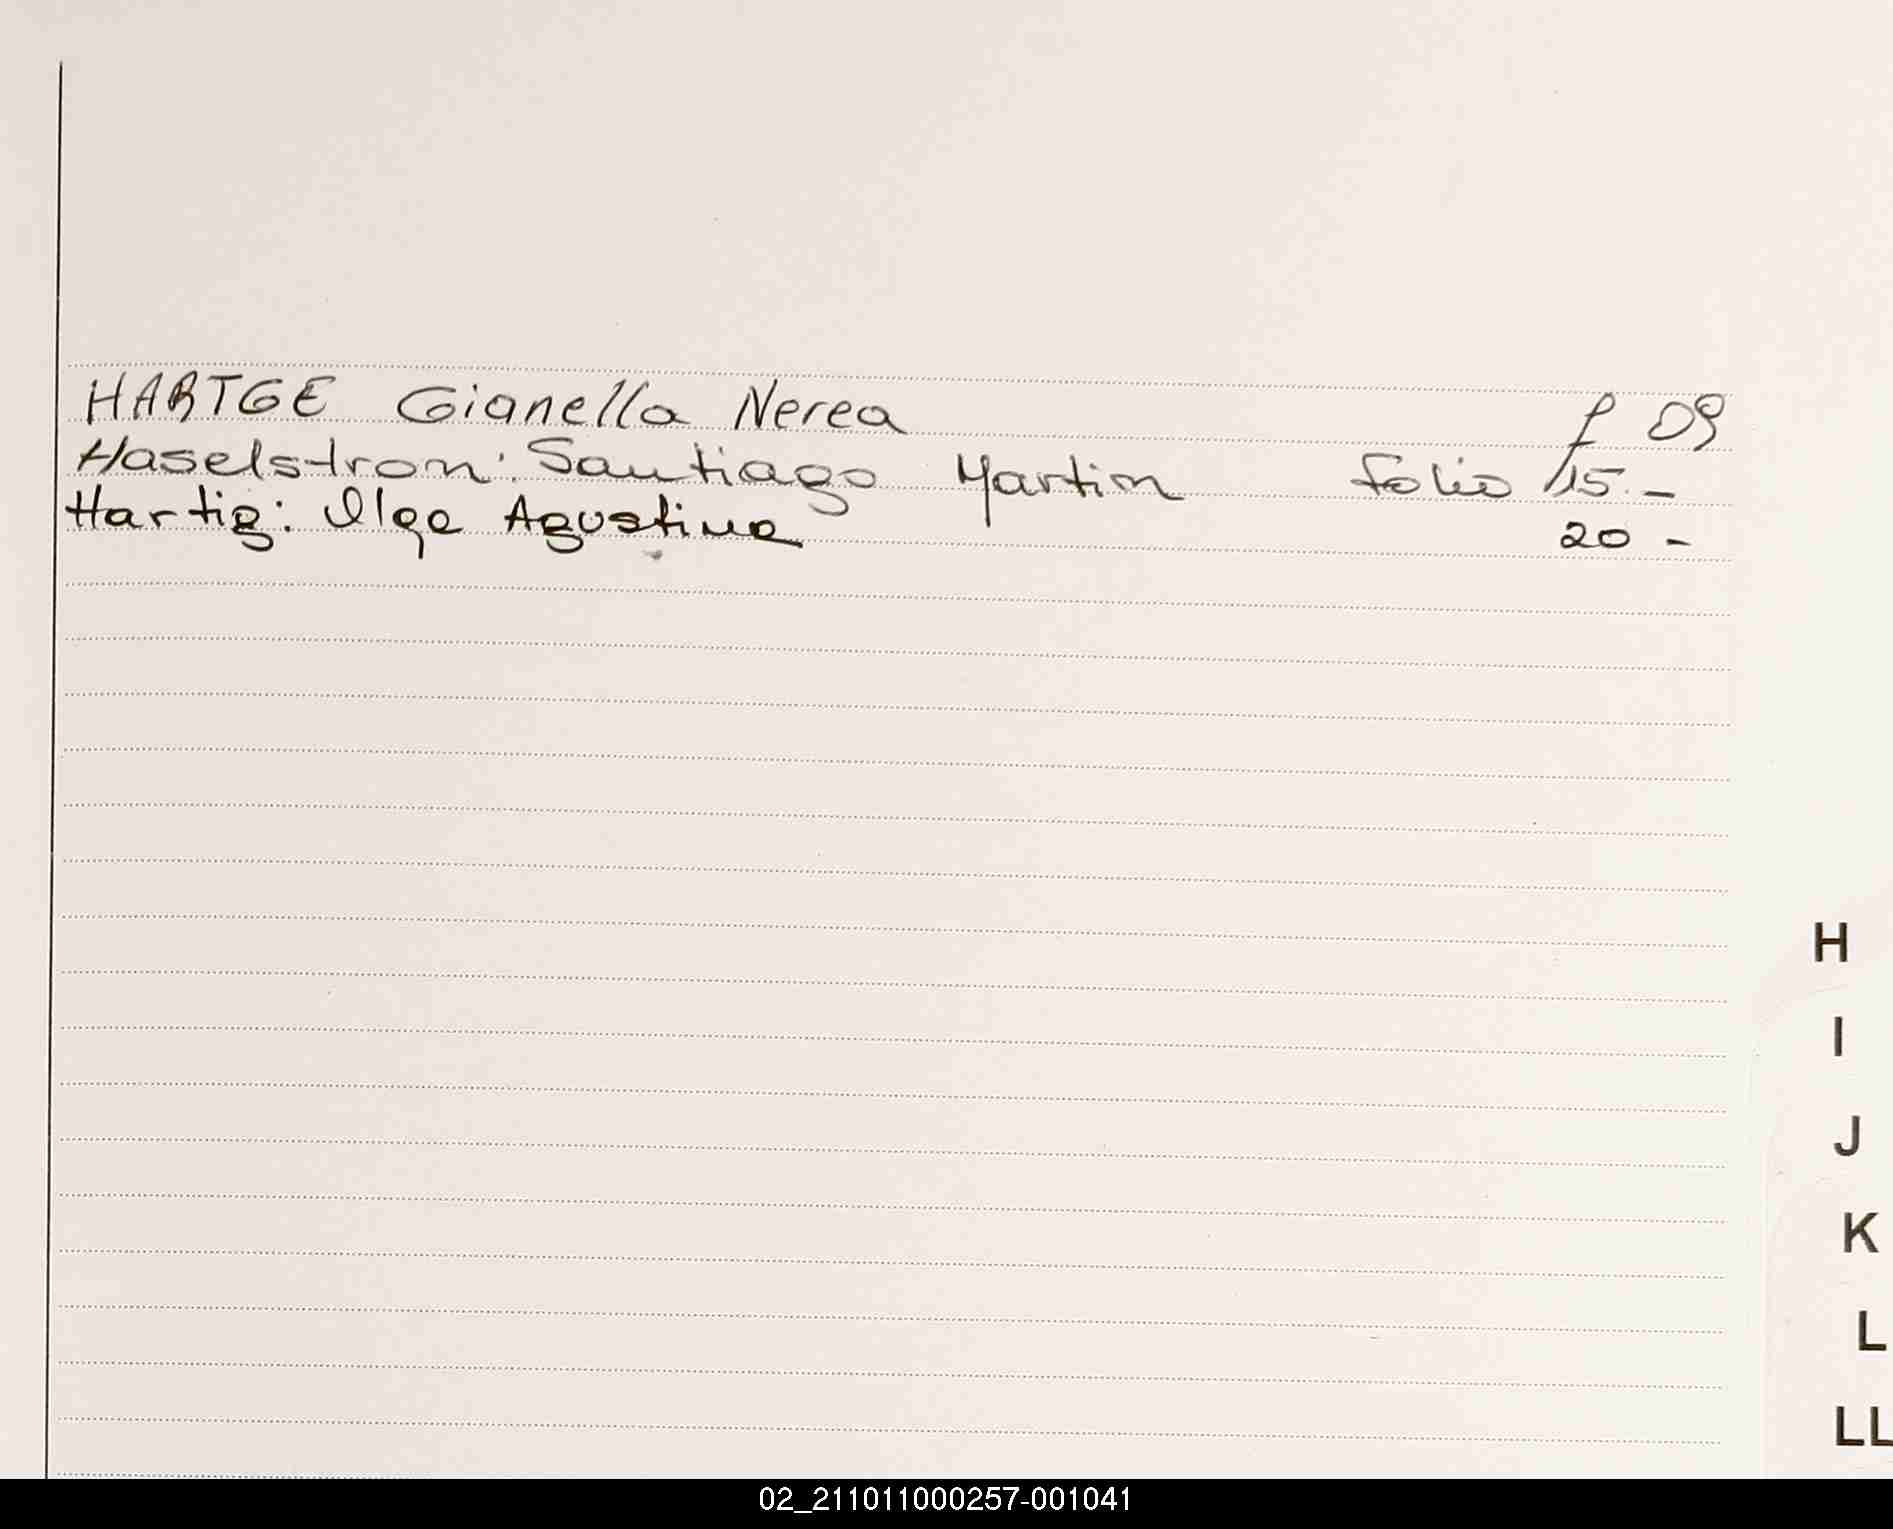 HARTGE Gianella Nerea f 09
Haselstrom: Santiago Martin folio 15.-
Hartig: Olga Agustina 20 -
H
I
J
K
L
LL
02_211011000257-001041